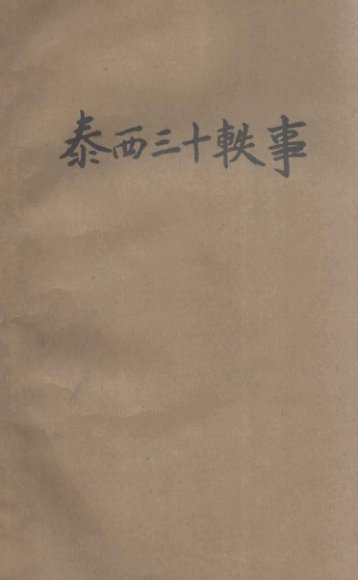 泰西三十軼事